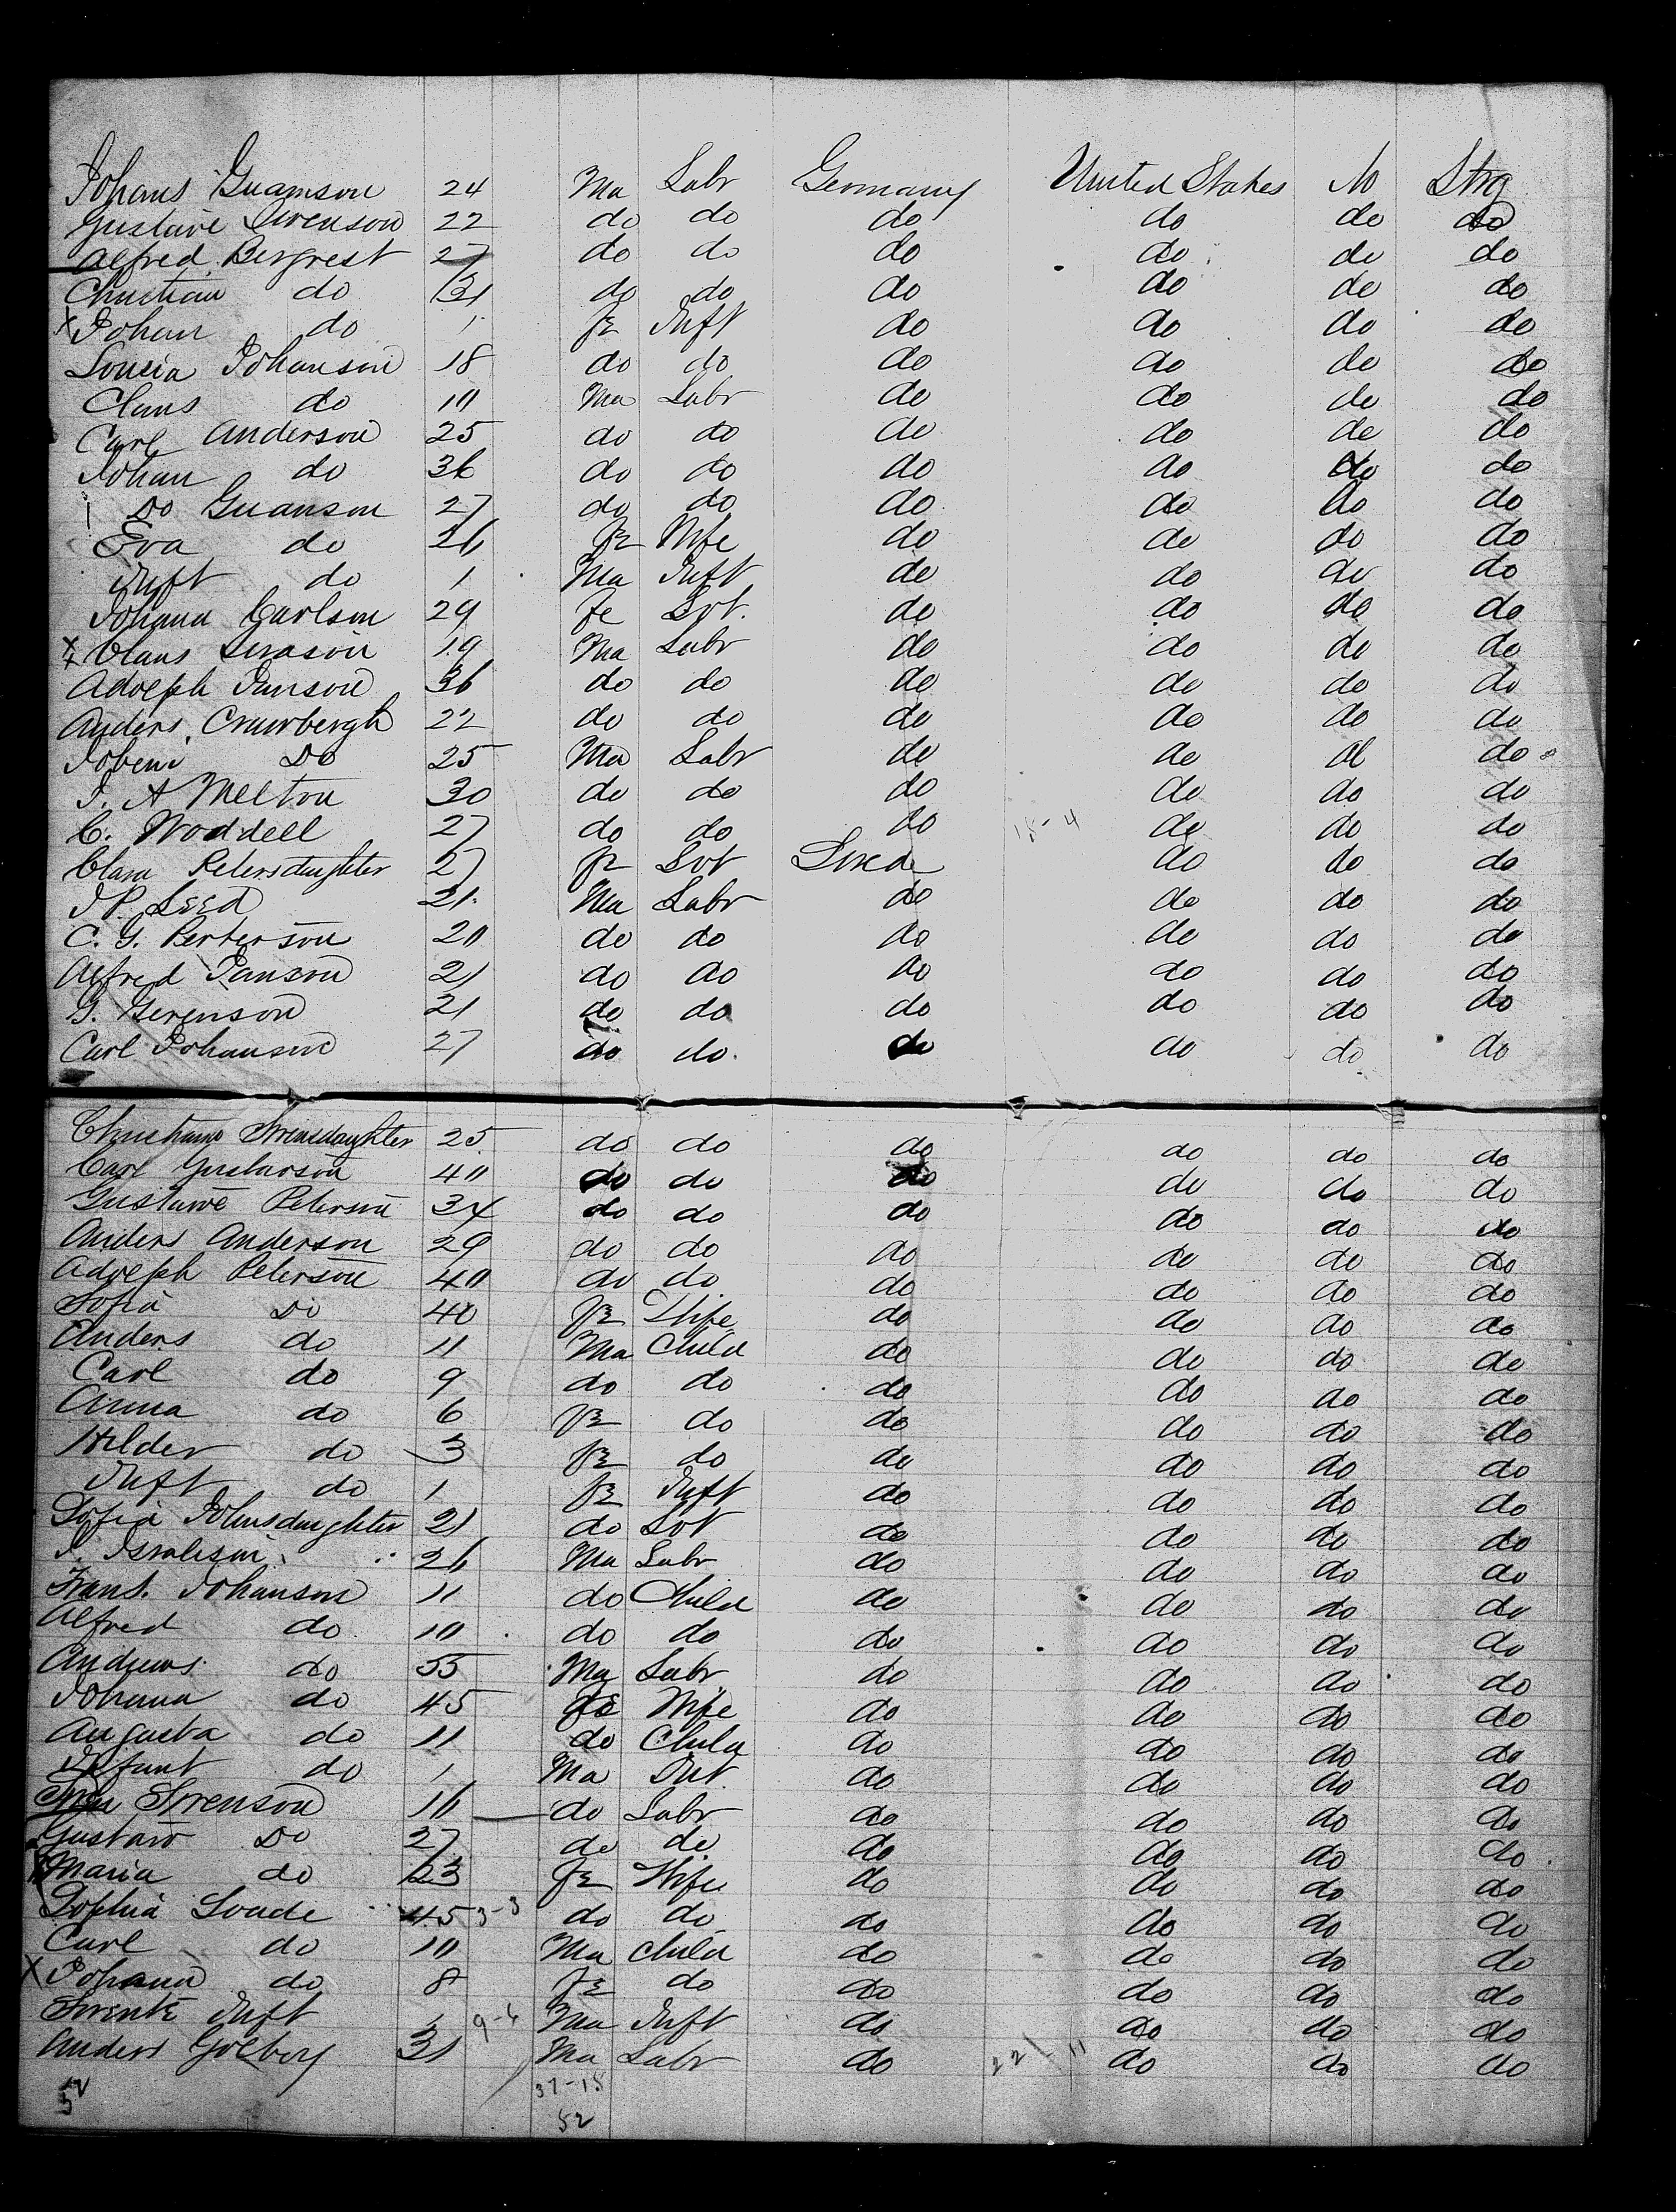 Johans Guamson 24 Ma Labr Germany United States No Strg
Gustave Swenson 22 do do do do do do
Alfred Bergrest 27 do do do do do do
Christian do 31 do do do do do do
X Johan do 1 Fe Inft do do do do
Lousia Johanson 18 do do do do do do
Claus do 10 Ma Labr do do do do
Carl Anderson 25 do do do do do do
Johan do 36 do do do do do do
Do Guanson 27 do do do do do do
Eva do 26 Fe Wife do do do do
Inft do 1 Ma Inft do do do do
Johana Carlson 29 Fe Svt. do do do do
Olaus 19 Ma Labr do do do do
Adolph Janson 36 do do do do do do
Anders Cruwbergh 22 do do do do do do
Do 25 Ma Labr do do d do
J. A Melton 30 do do do do do do
C. Woddell 27 do do do 15-4 do do do
Clara Petersdaughter 27 Fe Svt Swed do do do
J P. Seed 21 Ma Labr do do do do
C. G. Perterson 20 do do do do do do
Alfred Janson 21 do do do do do do
G. Serenson 21 do do do do do do
Carl Johanson 27 do do do do do do
Swensdaughter 25 do do do do do do
Carl Gustavson 40 do do do do do do
Gustawe Peterson 34 do do do do do do
Anders Anderson 29 do do do do do do
Adolph Peterson 40 do do do do do do
Sofia Do 40 Fe Wife do do do do
Anders do 11 Ma Child do do do do
Carl do 9 do do do do do do
Anna do 6 Fe do do do do do
Hilder do 3 Fe do do do do do
Inft do 1 Fe Inft do do do do
Sofia Johnsdaughter 21 do Svt do do do do
J. 26 Ma Labr do do do do
Frans. Johanson 11 do Child do do do do
Alfred do 10 do do do do do do
Andrews do 55 Ma Labr do do do do
Johana do 45 Fe Wife do do do do
Augusta do 11 do Child do do do do
Infant do 1 Ma Inf. do do do do
Swenson 16 do Labr do do do do
Gustavo Do 27 do do do do do do
Maria do 23 Fe Wife do do do do
Sophia Soude 45 3-3 do do do do do do
Carl do 10 Ma child do do do do
X Johana do 8 Fe do do do do do
Swenke Inft 1 9-6 Ma Inft do do do do
Anders Golberg 31 Ma Labr do 22 11 do do do
37-15
52